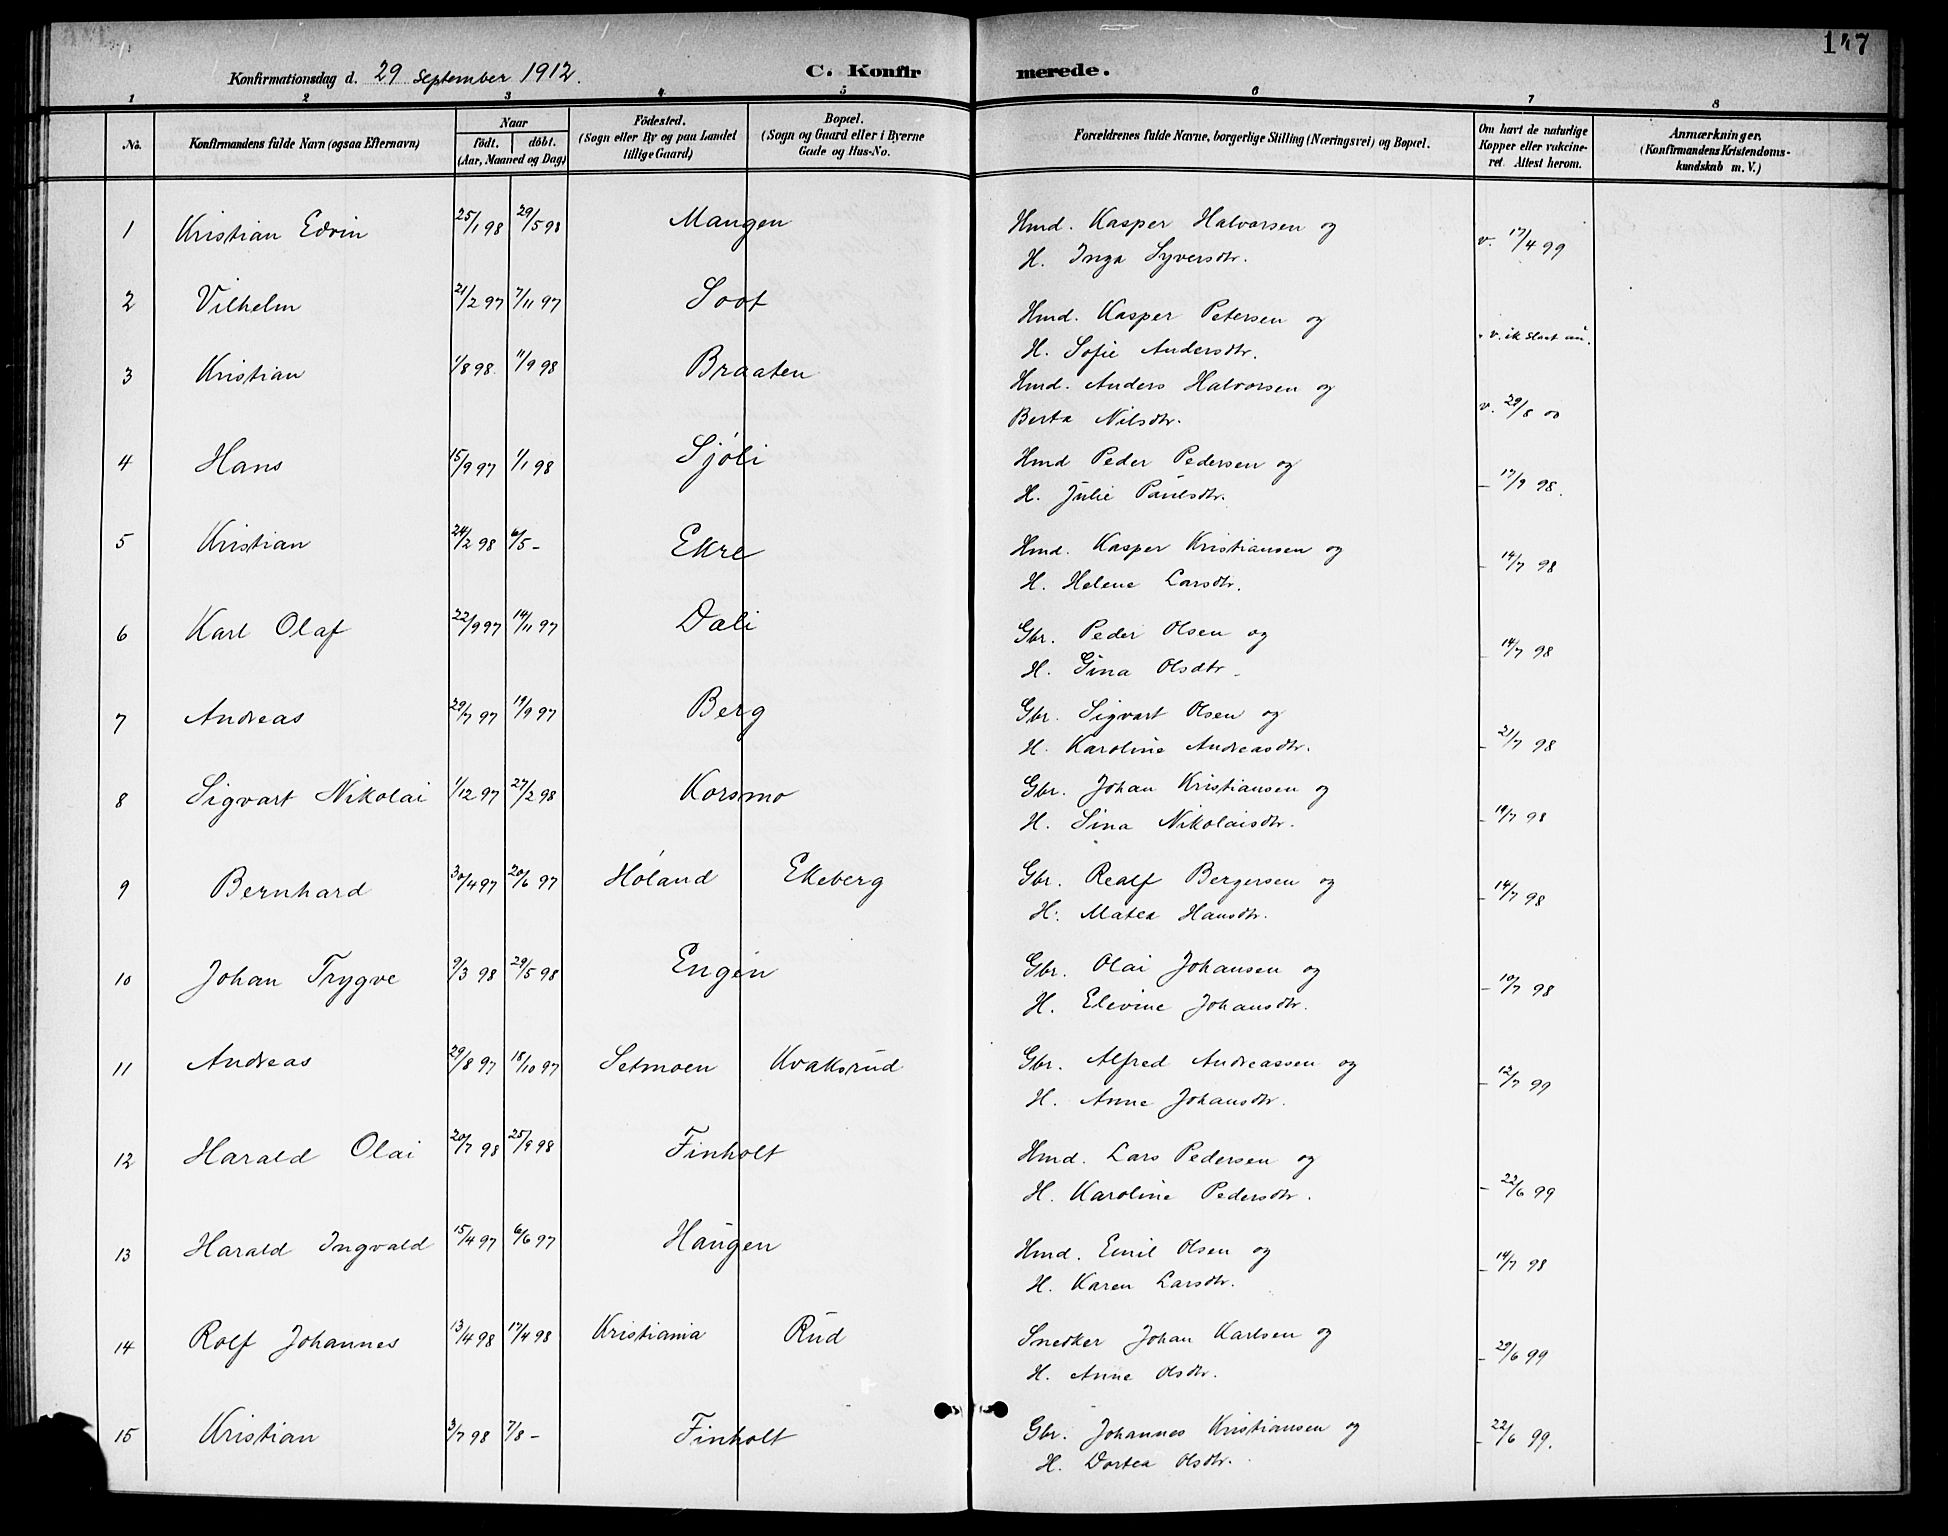 147
Konfirmationsdag d. 29 September 1912. C. Konfirmerede.
1 2 3 4 5 6 7 8
No. Konfirmandens fulde Navn (ogsaa Efternavn) Naar födt. döbt. (Aar, Maaned og Dag) Födested. (Sogn eller By og paa Landet tillige Gaard) Bopæl. (Sogn og Gaard eller i Byerne Gade og Hus-No. Forældrenes fulde Navne, borgerlige Stilling (Næringsvei) og Bopæl. Om havt de naturlige Kopper eller vakcineret. Attest herom. Anmærkninger. (Konfirmandens Kristendomskundskab m. V.)
1 Kristian Edvin 25/1 98 29/5 98 Mangen Hmd. Kasper Halvorsen og v. 17/4 99
H. Inga Syversdtr.
2 Vilhelm 21/2 97 7/11 97 Soot Hmd. Kasper Petersen og v. ik slaat an.
H. Sofie Andersdtr.
3 Kristian 1/8 98. 11/9 98 Braaten Hmd. Anders Halvorsen og v. 29/8 00
Berta Nilsdtr.
4 Hans 15/9 97 1/1 98 Sjøli Hmd Peder Pedersen og
H. Julie Paulsdtr. – 17/9 98.
5 Kristian 24/2 98 6/5 – Ekre Hmd. Kasper Kristiansen og – 14/7 98
H. Helene Larsdtr.
6 Karl Olaf 22/9 97 14/11 97 Dali Gbr. Peder Olsen og – 14/7 98
H. Gina Olsdtr.
7 Andreas 29/7 97 19/9 97 Berg Gbr. Sigvart Olsen og – 21/7 98
H. Karoline Andreasdtr.
8 Sigvart Nikolai 1/12 97 27/2 98 Korsmo Gbr. Johan Kristiansen og
H. Sina Nikolaisdtr. – 14/7 98
9 Bernhard 30/4 97 20/6 97 Høland Ekeberg Gbr. Realf Bergersen og – 14/7 98
H. Matea Hansdtr.
10 Johan Trygve 9/3 98 29/5 98 Engen Gbr. Olai Johansen og – 10/7 98
H. Elevine Johansdtr.
11 Andreas 29/8 97 18/10 97 Setmoen Kvaksrud Gbr. Alfred Andreassen og – 12/7 99
H. Anne Johansdtr.
12 Harald Olai 20/7 98 25/9 98 Finholt Hmd. Lars Pedersen og
H. Karoline Pedersdtr. – 22/6 99
13 Harald Ingvald 15/4 97 6/6 97 Haugen Hmd. Emil Olsen og – 14/7 98
H. Karen Larsdtr.
14 Rolf Johannes 13/4 98 17/4 98 Kristiania Rud Snedker Johan Karlsen og – 29/6 99
H. Anne Olsdtr.
15 Kristian 3/7 98 7/8 – Finholt Gbr. Johannes Kristiansen og – 22/6 99.
H. Dortea Olsdtr.